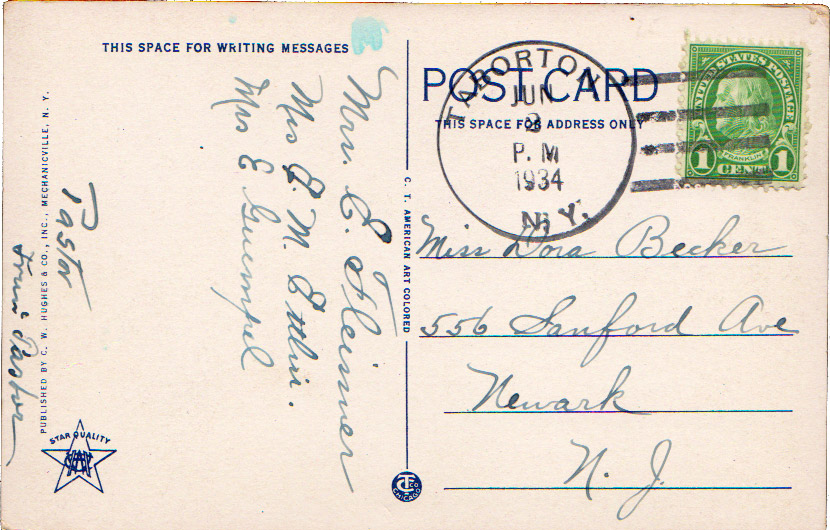 THIS SPACE FOR WRITING MESSAGES
Mrs. E. Fleissner
Mrs E. M.
Mrs E Guempel
Pastor
Pastor
PUBLISHED BY C. W. HUGHES & CO., INC., MECHANICVILLE, N. Y.
STAR QUALITY
C. T. AMERICAN ART COLORED
CHICAGO
POST CARD
THIS SPACE FOR ADDRESS ONLY
TABORTON
JUN
P. M
1934
N. Y.
UNITED STATES POSTAGE
FRANKLIN
1 CENT 1
Miss Dora Becker
556 Sanford Ave
Newark
N. J.